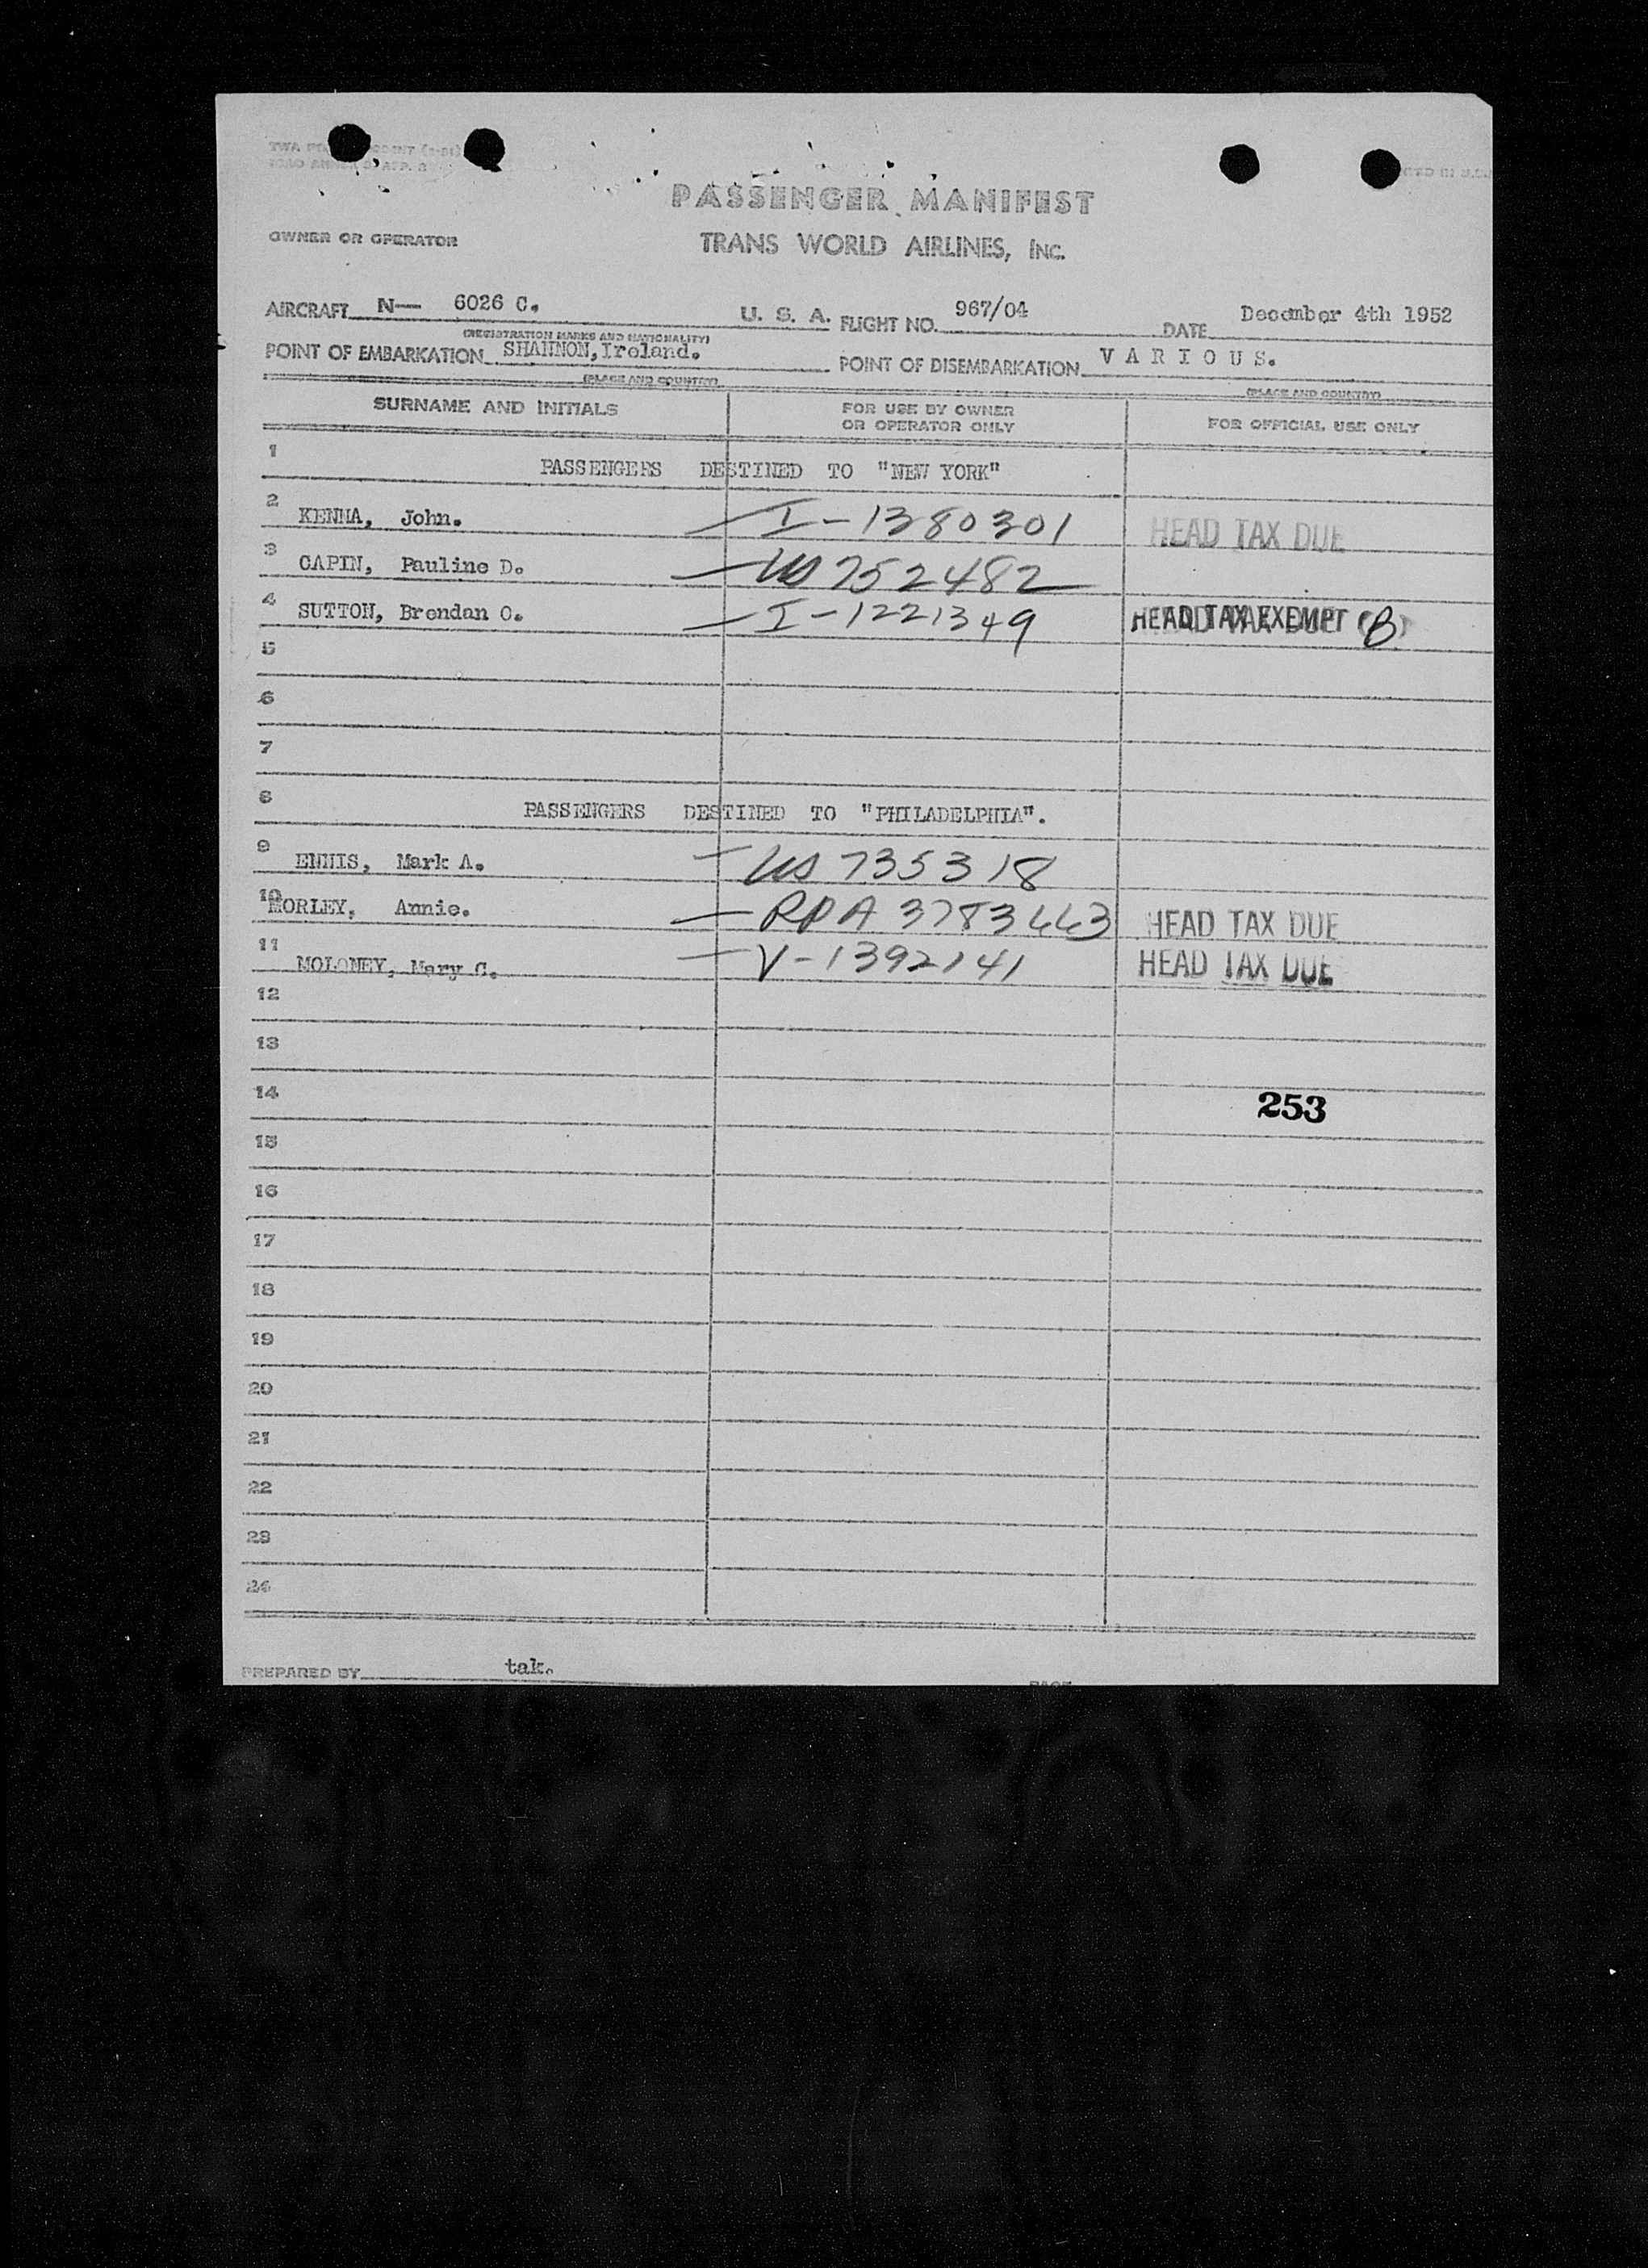 PASSENGER MANIFEST
OWNER OR OPERATOR TRANS WORLD AIRLINES, INC.
AIRCRAFT N— 6026 C. U. S. A. FLIGHT NO. 967/04 DATE December 4th 1952
(REGISTRATION MARKS AND NATIONALITY)
POINT OF EMBARKATION SHANNON, Ireland. POINT OF DISEMBARKATION V A R I O U S.
(PLACE AND COUNTRY) (PLACE AND COUNTRY)
SURNAME AND INITIALS FOR USE BY OWNER OR OPERATOR ONLY FOR OFFICIAL USE ONLY
1 PASSENGERS DESTINED TO "NEW YORK"
2 KENNA, John. I-1380301 HEAD TAX DUE
3 CAPIN, Pauline D. US 752482
4 SUTTON, Brendan O. I-1221349 HEAD TAX EXEMPT (B)
5
6
7
8 PASSENGERS DESTINED TO "PHILADELPHIA".
9 ENNIS, Mark A. US 735318
10 MORLEY, Annie. RPA 3783443 HEAD TAX DUE
11 MOLONEY, Mary C. V-1392141 HEAD TAX DUE
12
13
14 253
15
16
17
18
19
20
21
22
23
24
PREPARED BY tak.